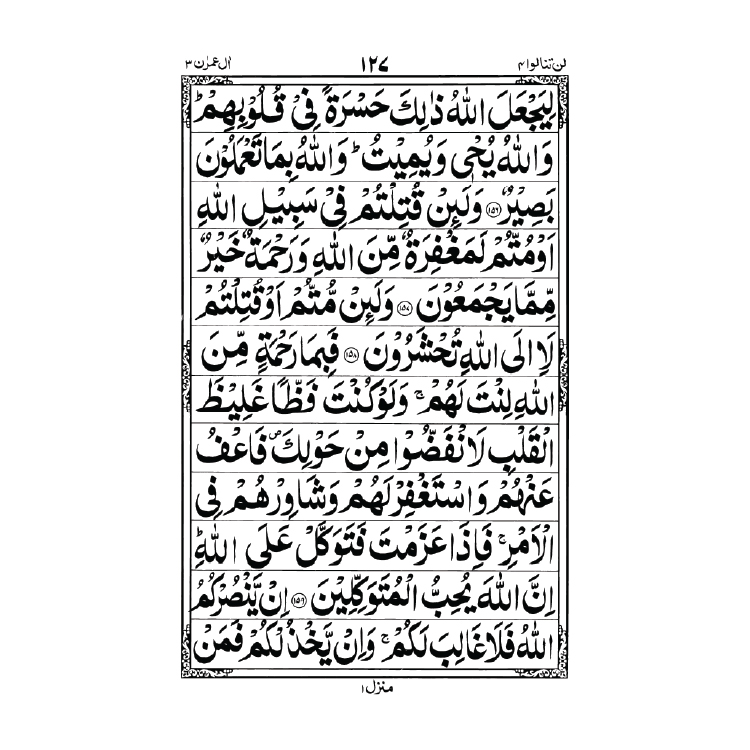 لن تنالوا ۴ ۱۲۷ اٰل عمرٰن ۳
لِيَجْعَلَ اللّٰهُ ذٰلِكَ حَسْرَةً فِيْ قُلُوْبِهِمْ ؕ
وَاللّٰهُ يُحْيٖ وَيُمِيْتُ ؕ وَاللّٰهُ بِمَا تَعْمَلُوْنَ
بَصِيْرٌ ﴿۱۵۶﴾ وَلَئِنْ قُتِلْتُمْ فِيْ سَبِيْلِ اللّٰهِ
اَوْ مُتُّمْ لَمَغْفِرَةٌ مِّنَ اللّٰهِ وَرَحْمَةٌ خَيْرٌ
مِّمَّا يَجْمَعُوْنَ ﴿۱۵۷﴾ وَلَئِنْ مُّتُّمْ اَوْ قُتِلْتُمْ
لَاۡ اِلَى اللّٰهِ تُحْشَرُوْنَ ﴿۱۵۸﴾ فَبِمَا رَحْمَةٍ مِّنَ
اللّٰهِ لِنْتَ لَهُمْ ۚ وَلَوْ كُنْتَ فَظًّا غَلِيْظَ
الْقَلْبِ لَانْفَضُّوْا مِنْ حَوْلِكَ ۖ فَاعْفُ
عَنْهُمْ وَاسْتَغْفِرْ لَهُمْ وَشَاوِرْهُمْ فِي
الْاَمْرِ ۚ فَاِذَا عَزَمْتَ فَتَوَكَّلْ عَلَى اللّٰهِ ؕ
اِنَّ اللّٰهَ يُحِبُّ الْمُتَوَكِّلِيْنَ ﴿۱۵۹﴾ اِنْ يَّنْصُرْكُمُ
اللّٰهُ فَلَا غَالِبَ لَكُمْ ۚ وَاِنْ يَّخْذُلْكُمْ فَمَنْ
منزل ۱